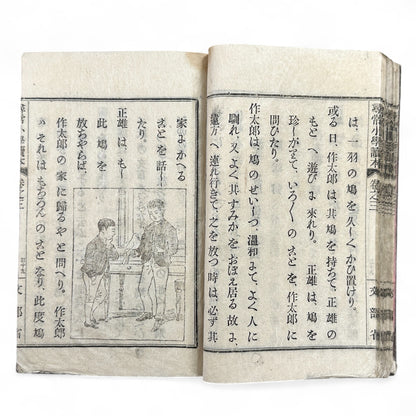 尋常小學讀本 卷之三
文部省
は、一羽の鳩を久しくかひ置けり。
或る日、作太郎は、其鳩を持ちて、正雄の
もとへ遊びに來れり。正雄は、鳩を
珍しがりて、いろ〱のことを、作太郎に
問ひたり。
作太郎は、鳩のせいしつ、温和にて、よく人に
馴れ、又よく其すみかをおぼえ居る故に、
遠方へ連れ行きて、之を放つ時は、必ず其
家にかへる
ことを話し
たり。
正雄は、もし
此鳩を
放ちやらば、
作太郎の家に歸るやと問へり。作太郎
は、それはもちろんのことなり。此度鳩
尋常小學讀本 卷之三
文部省